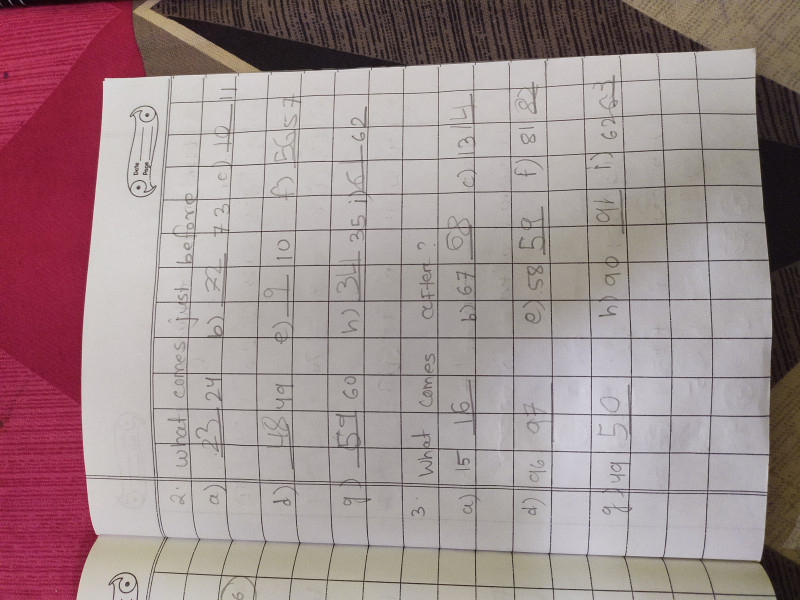 Date
Page
2. What comes just before
a) 23 24 b) 72 73 c) 10 11
d) 48 49 e) 9 10 f) 56 57
g) 59 60 h) 34 35 i) 61 62
3. What comes after?
a) 15 16 b) 67 68 c) 13 14
d) 96 97 e) 58 59 f) 81 82
g) 49 50 h) 90 91 i) 62 63
6